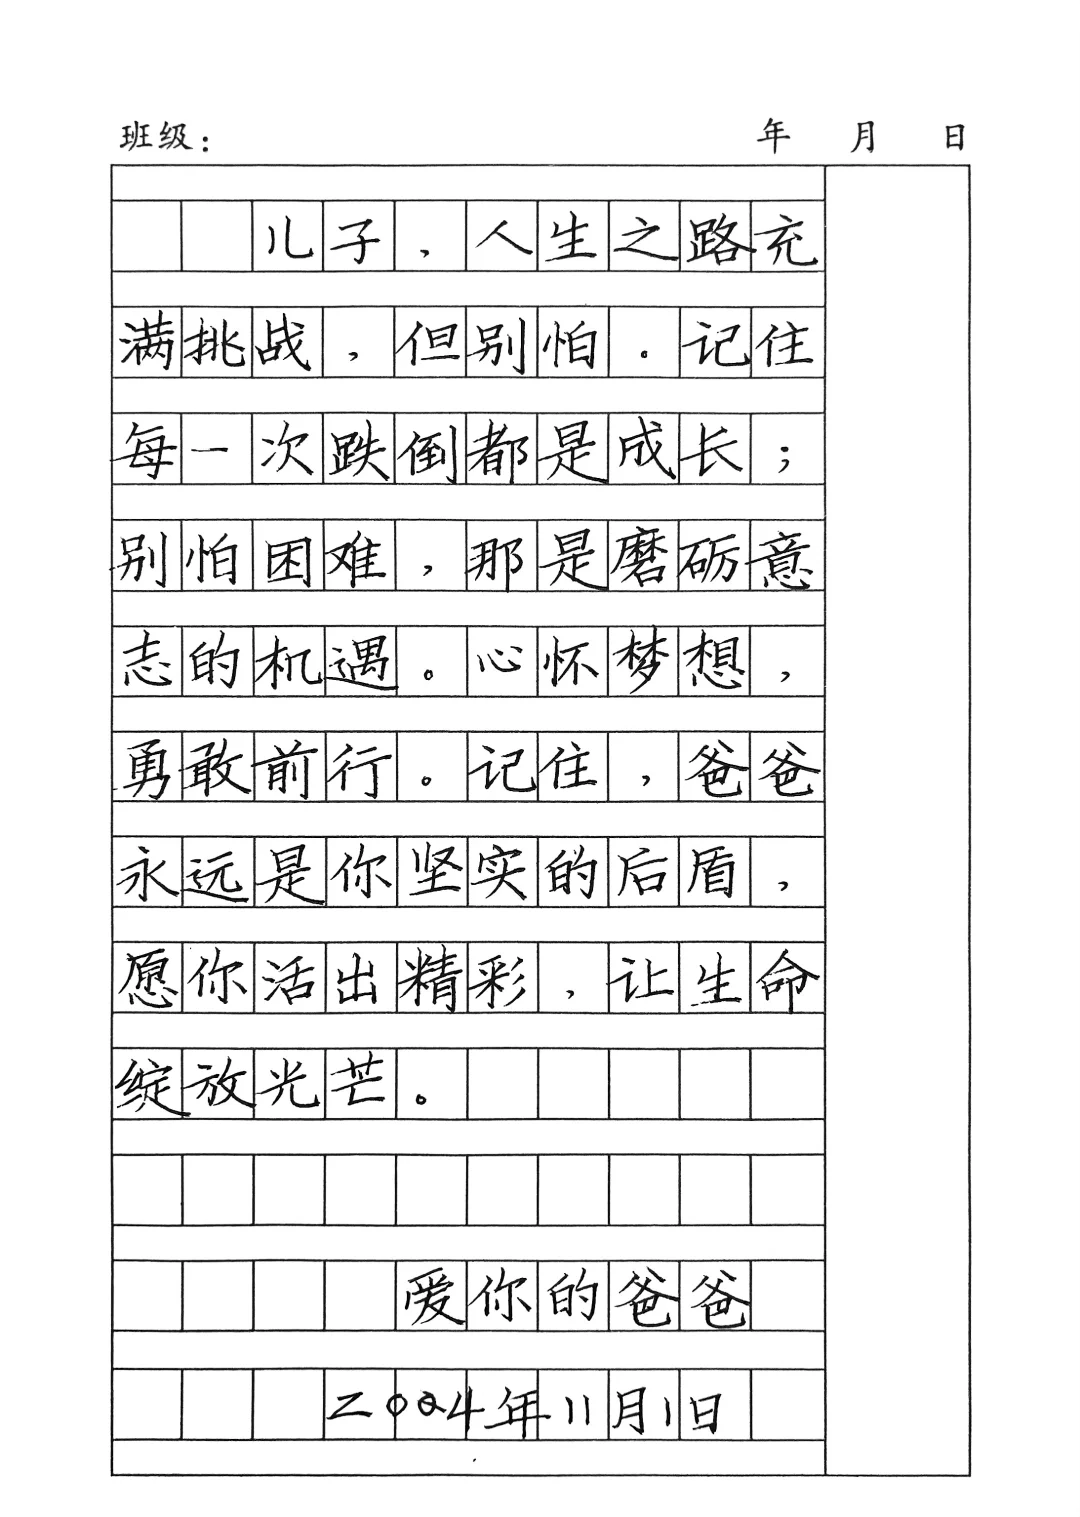 班级： 年 月 日
儿子，人生之路充
满挑战，但别怕。记住
每一次跌倒都是成长；
别怕困难，那是磨砺意
志的机遇。心怀梦想，
勇敢前行。记住，爸爸
永远是你坚实的后盾，
愿你活出精彩，让生命
绽放光芒。
爱你的爸爸
年11月1日